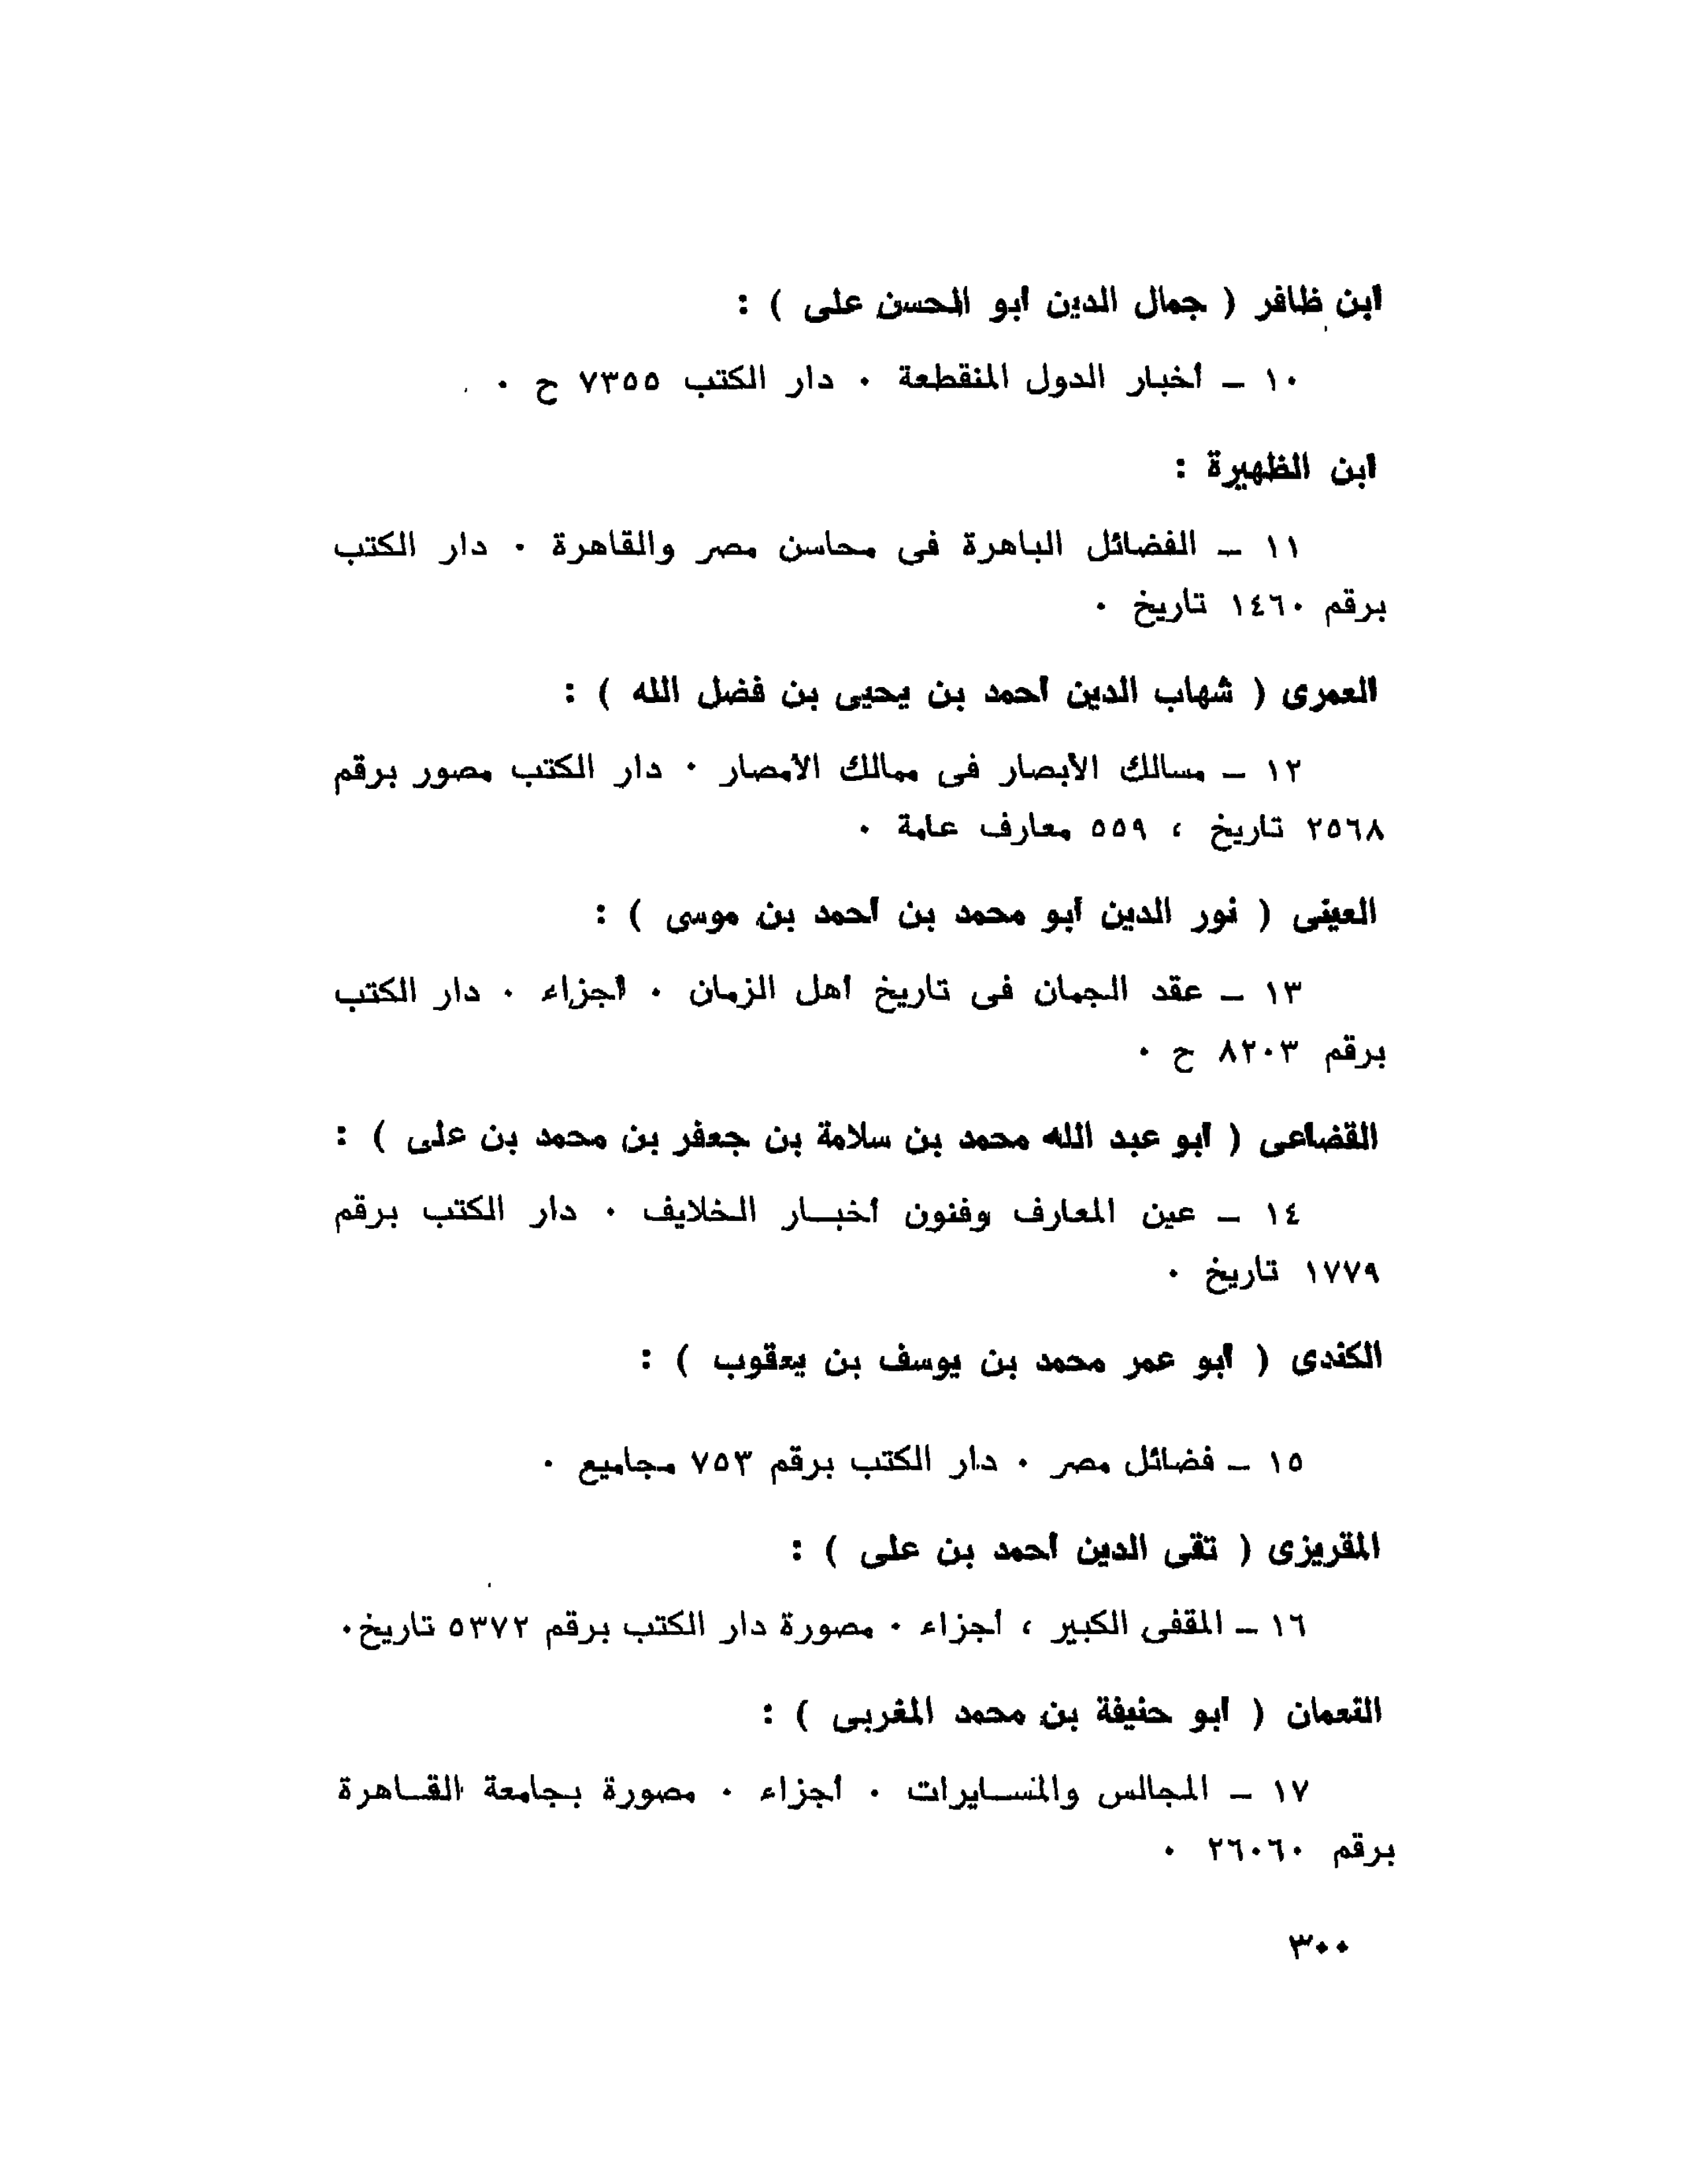 ابن ظافر ( جمال الدين أبو الحسن على ) :
١٠ ــ أخبار الدول المنقطعة ٠ دار الكتب ٧٣٥٥ ح ٠
ابن الظهيرة :
١١ ــ الفضائل الباهرة فى محاسن مصر والقاهرة ٠ دار الكتب
برقم ١٤٦٠ تاريخ ٠
العمرى ( شهاب الدين أحمد بن يحيى بن فضل الله ) :
١٢ ــ مسالك الأبصار فى ممالك الأمصار ٠ دار الكتب مصور برقم
٢٥٦٨ تاريخ ، ٥٥٩ معارف عامة ٠
العينى ( نور الدين أبو محمد بن أحمد بن موسى ) :
١٣ ــ عقد الجمان فى تاريخ أهل الزمان ٠ أجزاء ٠ دار الكتب
برقم ٨٢٠٣ ح ٠
القضاعى ( أبو عبد الله محمد بن سلامة بن جعفر بن محمد بن على ) :
١٤ ــ عين المعارف وفنون أخبــار الخلايف ٠ دار الكتب برقم
١٧٧٩ تاريخ ٠
الكندى ( أبو عمر محمد بن يوسف بن يعقوب ) :
١٥ ــ فضائل مصر ٠ دار الكتب برقم ٧٥٣ مجاميع ٠
المقريزى ( تقى الدين أحمد بن على ) :
١٦ ــ المقفى الكبير ، أجزاء ٠ مصورة دار الكتب برقم ٥٣٧٢ تاريخ٠
النعمان ( أبو حنيفة بن محمد المغربى ) :
١٧ ــ المجالس والمســايرات ٠ أجزاء ٠ مصورة بجامعة القــاهرة
برقم ٢٦٠٦٠ ٠
٣٠٠